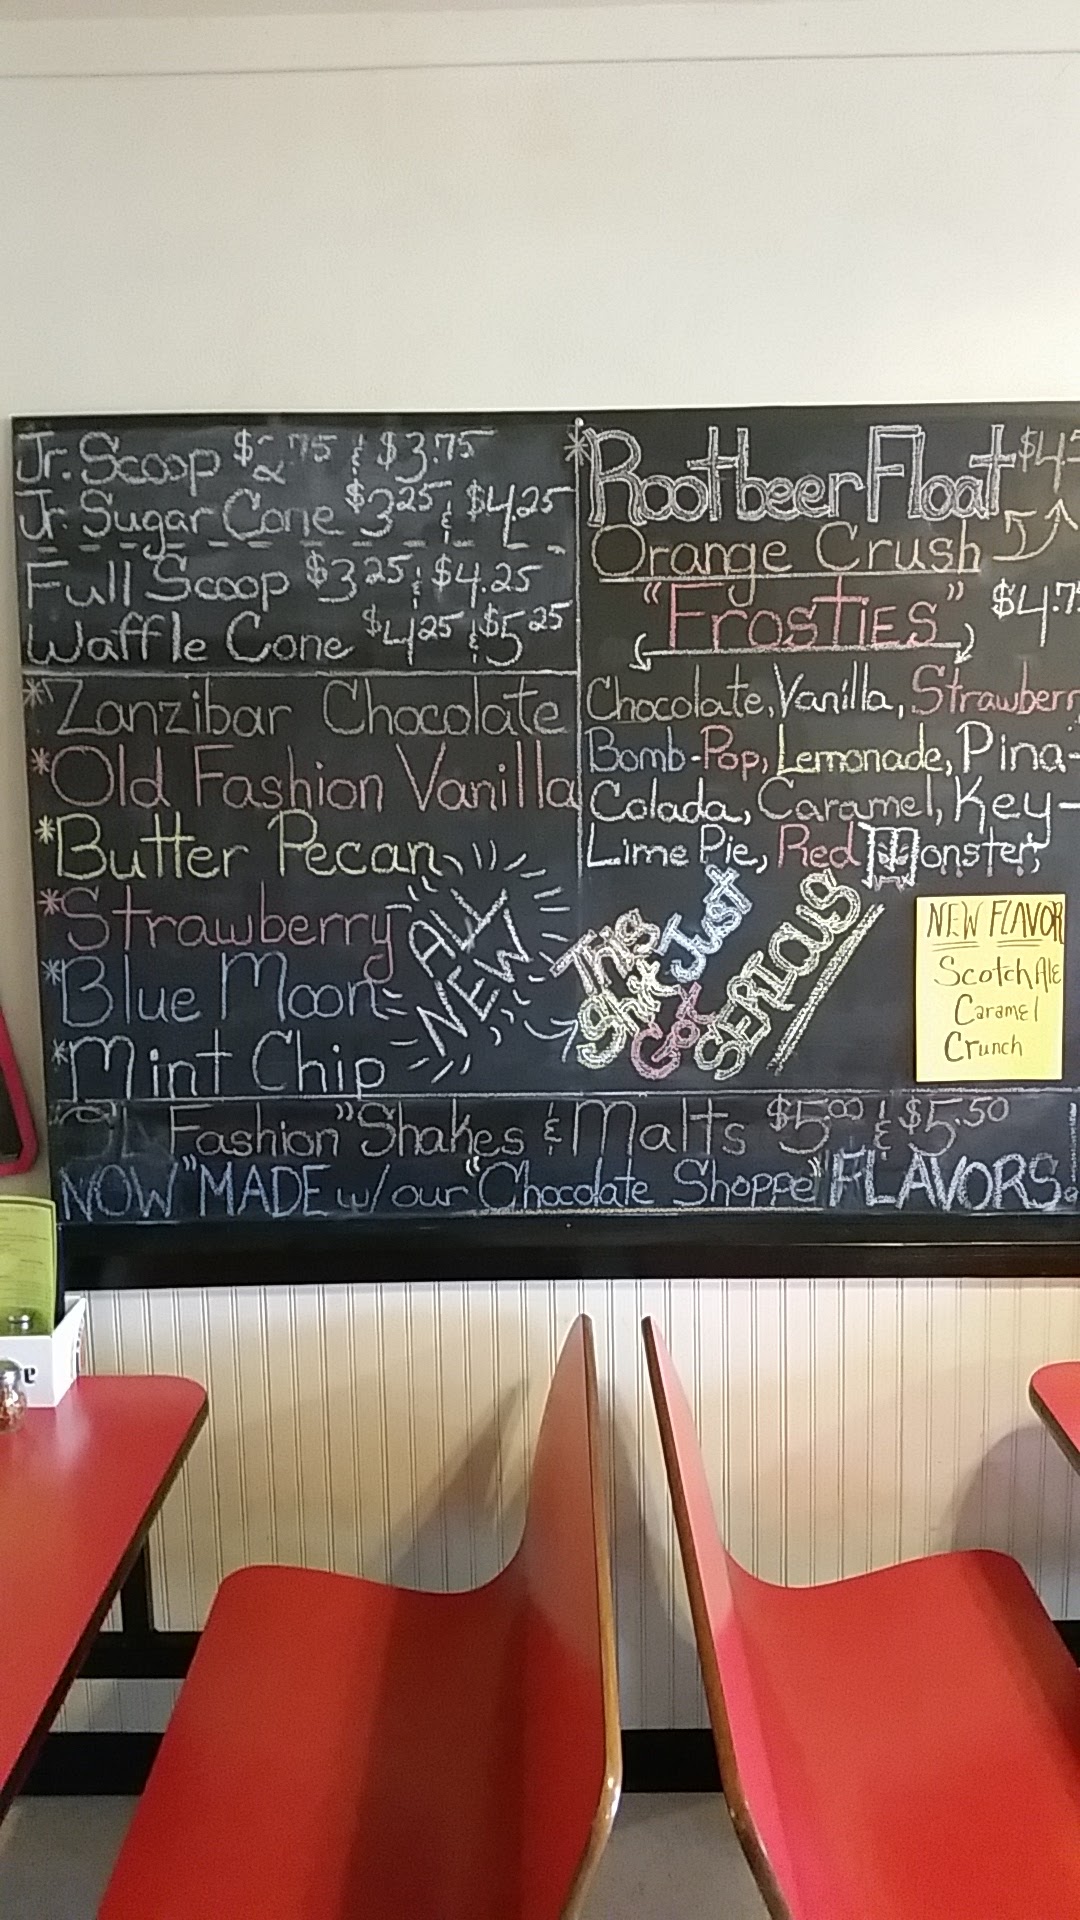 Jr. Scoop $2.75 & $3.75
Jr. Sugar Cone $3.25 & $4.25
Full Scoop $3.25 & $4.25
Waffle Cone $4.25 & $5.25
*Zanzibar Chocolate
*Old Fashion Vanilla
*Butter Pecan
*Strawberry
*Blue Moon
*Mint Chip
ALL
NEW
*Rootbeer Float $4.5
Orange Crush
"FrosTiES" $4.75
Chocolate, Vanilla, Strawberr
Bomb-Pop, Lemonade, Pina-
Colada, Caramel, Key-
Lime Pie, Red Monster,
This
Shit Just
Got
SERIOUS
NEW FLAVOR
Scotch Ale
Caramel
Crunch
Fashion" Shakes & Malts $5.00 & $5.50
NOW "MADE w/our "Chocolate Shoppe" FLAVORS!